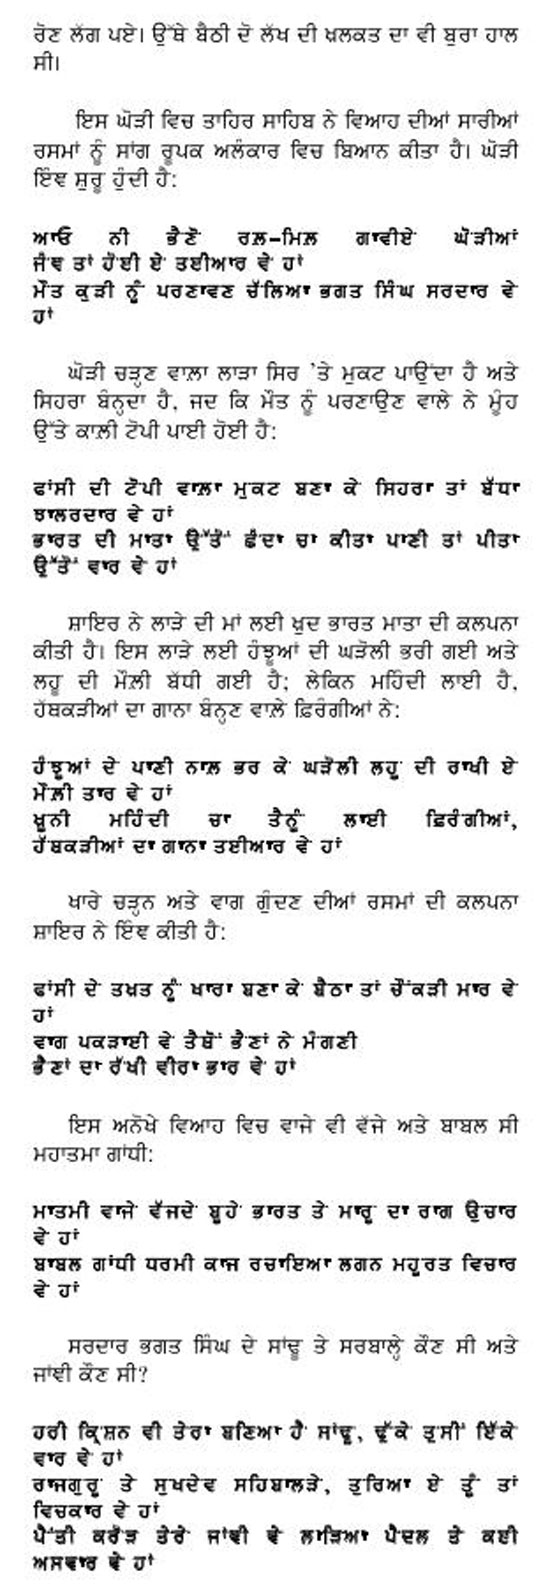 ਰੋਣ ਲੱਗ ਪਏ। ਉੱਥੇ ਬੈਠੀ ਦੋ ਲੱਖ ਦੀ ਖ਼ਲਕਤ ਦਾ ਵੀ ਬੁਰਾ ਹਾਲ
ਸੀ।
ਇਸ ਘੋੜੀ ਵਿਚ ਤਾਹਿਰ ਸਾਹਿਬ ਨੇ ਵਿਆਹ ਦੀਆਂ ਸਾਰੀਆਂ
ਰਸਮਾਂ ਨੂੰ ਸਾਂਗ ਰੂਪਕ ਅਲੰਕਾਰ ਵਿਚ ਬਿਆਨ ਕੀਤਾ ਹੈ। ਘੋੜੀ
ਇੰਞ ਸ਼ੁਰੂ ਹੁੰਦੀ ਹੈ:
ਆਓ ਨੀ ਭੈਣੋ ਰਲ਼-ਮਿਲ਼ ਗਾਵੀਏ ਘੋੜੀਆਂ
ਜੰਞ ਤਾਂ ਹੋਈ ਏ ਤਈਆਰ ਵੇ ਹਾਂ
ਮੌਤ ਕੁੜੀ ਨੂੰ ਪਰਣਾਵਣ ਚੱਲਿਆ ਭਗਤ ਸਿੰਘ ਸਰਦਾਰ ਵੇ
ਹਾਂ
ਘੋੜੀ ਚੜ੍ਹਣ ਵਾਲ਼ਾ ਲਾੜਾ ਸਿਰ 'ਤੇ ਮੁਕਟ ਪਾਉਂਦਾ ਹੈ ਅਤੇ
ਸਿਹਰਾ ਬੰਨ੍ਹਦਾ ਹੈ, ਜਦ ਕਿ ਮੌਤ ਨੂੰ ਪਰਣਾਉਣ ਵਾਲੇ ਨੇ ਮੂੰਹ
ਉੱਤੇ ਕਾਲ਼ੀ ਟੋਪੀ ਪਾਈ ਹੋਈ ਹੈ:
ਫਾਂਸੀ ਦੀ ਟੋਪੀ ਵਾਲ਼ਾ ਮੁਕਟ ਬਣਾ ਕੇ ਸਿਹਰਾ ਤਾਂ ਬੱਧਾ
ਝਾਲਰਦਾਰ ਵੇ ਹਾਂ
ਭਾਰਤ ਦੀ ਮਾਤਾ ਉੱਤੋਂ ਛੰਦਾ ਚਾ ਕੀਤਾ ਪਾਣੀ ਤਾਂ ਪੀਤਾ
ਉੱਤੋਂ ਵਾਰ ਵੇ ਹਾਂ
ਸ਼ਾਇਰ ਨੇ ਲਾੜੇ ਦੀ ਮਾਂ ਲਈ ਖ਼ੁਦ ਭਾਰਤ ਮਾਤਾ ਦੀ ਕਲਪਨਾ
ਕੀਤੀ ਹੈ। ਇਸ ਲਾੜੇ ਲਈ ਹੰਝੂਆਂ ਦੀ ਘੜੋਲੀ ਭਰੀ ਗਈ ਅਤੇ
ਲਹੂ ਦੀ ਮੌਲ਼ੀ ਬੱਧੀ ਗਈ ਹੈ; ਲੇਕਿਨ ਮਹਿੰਦੀ ਲਾਈ ਹੈ,
ਹੱਥਕੜੀਆਂ ਦਾ ਗਾਨਾ ਬੰਨ੍ਹਣ ਵਾਲ਼ੇ ਫ਼ਿਰੰਗੀਆਂ ਨੇ:
ਹੰਝੂਆਂ ਦੇ ਪਾਣੀ ਨਾਲ਼ ਭਰ ਕੇ ਘੜੋਲੀ ਲਹੂ ਦੀ ਰਾਖੀ ਏ
ਮੌਲ਼ੀ ਤਾਰ ਵੇ ਹਾਂ
ਖ਼ੂਨੀ ਮਹਿੰਦੀ ਚਾ ਤੈਨੂੰ ਲਾਈ ਫ਼ਿਰੰਗੀਆਂ,
ਹੱਥਕੜੀਆਂ ਦਾ ਗਾਨਾ ਤਈਆਰ ਵੇ ਹਾਂ
ਖਾਰੇ ਚੜ੍ਹਨ ਅਤੇ ਵਾਗ ਗੁੰਦਣ ਦੀਆਂ ਰਸਮਾਂ ਦੀ ਕਲਪਨਾ
ਸ਼ਾਇਰ ਨੇ ਇੰਞ ਕੀਤੀ ਹੈ:
ਫਾਂਸੀ ਦੇ ਤਖਤ ਨੂੰ ਖਾਰਾ ਬਣਾ ਕੇ ਬੈਠਾ ਤਾਂ ਚੌਂਕੜੀ ਮਾਰ ਵੇ
ਹਾਂ
ਵਾਗ ਪਕੜਾਈ ਵੇ ਤੈਥੋਂ ਭੈਣਾਂ ਨੇ ਮੰਗਣੀ
ਭੈਣਾਂ ਦਾ ਰੱਖੀਂ ਵੀਰਾ ਭਾਰ ਵੇ ਹਾਂ
ਇਸ ਅਨੋਖੇ ਵਿਆਹ ਵਿਚ ਵਾਜੇ ਵੀ ਵੱਜੇ ਅਤੇ ਬਾਬਲ ਸੀ
ਮਹਾਤਮਾ ਗਾਂਧੀ:
ਮਾਤਮੀ ਵਾਜੇ ਵੱਜਦੇ ਬੂਹੇ ਭਾਰਤ ਤੇ ਮਾਰੂ ਦਾ ਰਾਗ ਉਚਾਰ
ਵੇ ਹਾਂ
ਬਾਬਲ ਗਾਂਧੀ ਧਰਮੀ ਕਾਜ ਰਚਾਇਆ ਲਗਨ ਮਹੂਰਤ ਵਿਚਾਰ
ਵੇ ਹਾਂ
ਸਰਦਾਰ ਭਗਤ ਸਿੰਘ ਦੇ ਸਾਂਢੂ ਤੇ ਸਰਬਾਲ੍ਹੇ ਕੌਣ ਸੀ ਅਤੇ
ਜਾਂਞੀ ਕੌਣ ਸੀ?
ਹਰੀ ਕ੍ਰਿਸ਼ਨ ਵੀ ਤੇਰਾ ਬਣਿਆ ਹੈ ਸਾਂਢੂ, ਢੁੱਕੇ ਤੁਸੀਂ ਇੱਕੇ
ਵਾਰ ਵੇ ਹਾਂ
ਰਾਜਗੁਰੂ ਤੇ ਸੁਖਦੇਵ ਸਹਿਬਾਲੜੇ, ਤੁਰਿਆ ਏ ਤੂੰ ਤਾਂ
ਵਿਚਕਾਰ ਵੇ ਹਾਂ
ਪੈਂਤੀ ਕਰੋੜ ਤੇਰੇ ਜਾਂਞੀ ਵੇ ਲਾੜਿਆ ਪੈਦਲ ਤੇ ਕਈ
ਅਸਵਾਰ ਵੇ ਹਾਂ